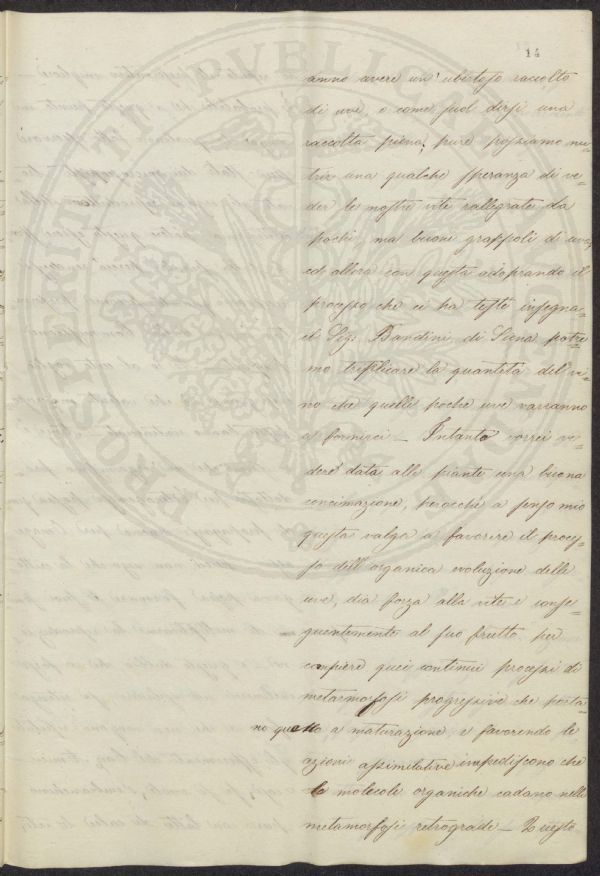 14
anno avere un' ubertoso raccolto
di uve, o come suol dirsi una
raccolta piena, pure possiamo nu=
trire una qualche speranza di ve=
der le nostre vite rallegrate da
pochi, ma buoni grappoli di uva,
ed allora con questa adoprando il
processo che ci ha testè insegna=
il Sig. Bandini di Siena potre=
mo triplicare la quantità del vi=
no che quelle poche uve varranno
a fornirci — Intanto vorrei ve=
dere data alle piante una buona
concimazione, perocchè a senso mio
questa valga a favorire il proces=
so dell'organica evoluzione delle
uve, dia forza alla vite e conse=
guentemente al suo frutto per
compiere quei continui processi di
metarmofosi progressive che porta=
no questo a maturazione, e favorendo le
azioni assimilative impediscono che
le molecole organiche cadano nelle
metamorfosi retrograde — Questo
PROSPERITATI PVBLICAE